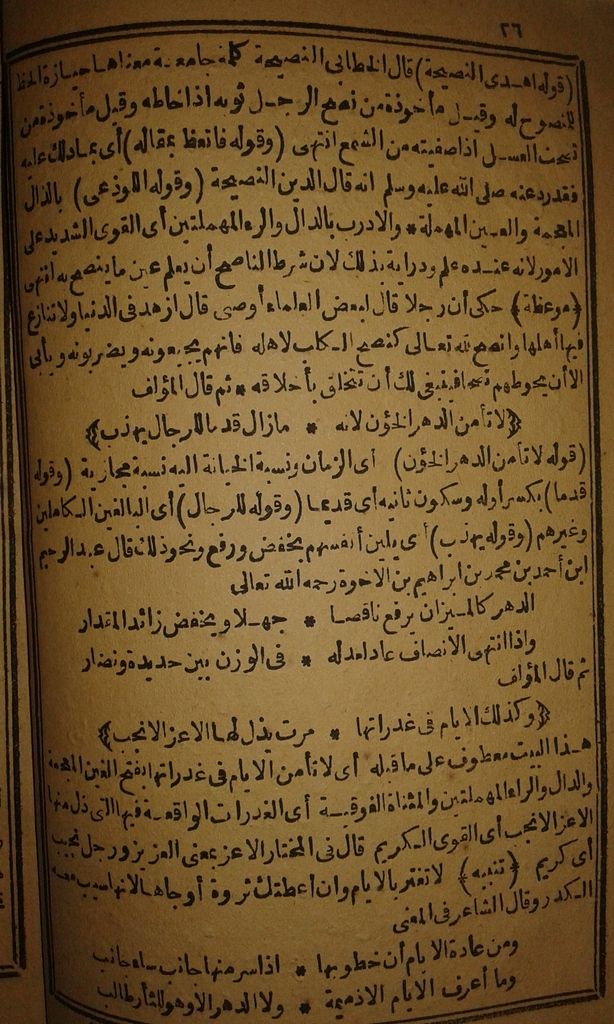 ٢٦
(قوله اهدى النصيحة) قال الخطابى النصيحة كلمة جامعة معناها حيازة الحظ
للمنصوح له وقيل مأخوذة من نصح الرجل ثوبه اذا خاطه وقيل مأخوذة من
نصحت العسل اذا صفيته من الشمع انتهى (وقوله فاتعظ بمقاله) أى بما دلك عليه
فقد ورد عنه صلى الله عليه وسلم انه قال الدين النصيحة (وقوله اللوذعى) بالذال
المعجمة والعين المهملة * والادرب بالدال والراء المهملتين أى القوى الشديد على
الامور لانه عنده علم ودراية بذلك لان شرط الناصح أن يعلم عين ما ينصح به انتهى
(موعظة) حكى أن رجلا قال لبعض العلماء أوصنى قال ازهد فى الدنيا ولا تنازع
فيها أهلها وانصح لله تعالى كنصح الكلب لاهله فانهم يجيعونه ويضربونه ويأبى
الا أن يحوطهم نصحا فينبغى لك أن تتخلق بأخلاقه * ثم قال المؤلف
(لا تأمن الدهر الخؤن لانه * مازال قدما للرجال يهذب)
(قوله لا تأمن الدهر الخؤن) أى الزمان ونسبة الخيانة اليه نسبة مجازية (وقوله
قدما) بكسر أوله وسكون ثانيه أى قديما (وقوله للرجال) أى البالغين الكاملين
وغيرهم (وقوله يهذب) أى يلين أنفسهم بخفض ورفع ونحو ذلك قال عبد الرحيم
ابن أحمد بن محمد بن ابراهيم بن الاخوة رحمه الله تعالى
الدهر كالميزان يرفع ناقصا * جهلا ويخفض زائد المقدار
واذا انتهى الانصاف عاد لعدله * فى الوزن بين حديدة ونضار
ثم قال المؤلف
(وكذلك الايام فى غدراتها * مرت يذل لها الاعز الانجب)
هذا البيت معطوف على ما قبله أى لا تأمن الايام فى غدراتها بفتح الغين المعجمة
والدال والراء المهملتين والمثناة الفوقية أى الغدرات الواقعة فيها التى ذل منها
الاعز الانجب أى القوى الكريم قال فى المختار الاعز بمعنى العزيز ورجل نجيب
أى كريم (تنبيه) لا تغتر بالايام وان أعطتك ثروة أو جاها لانها سيب معه
الكدر وقال الشاعر فى المعنى
ومن عادة الايام أن خطوبها * اذا سر منها جانب ساء جانب
وما أعرف الايام الا ذميمة * ولا الدهر الا وهو للثار طالب